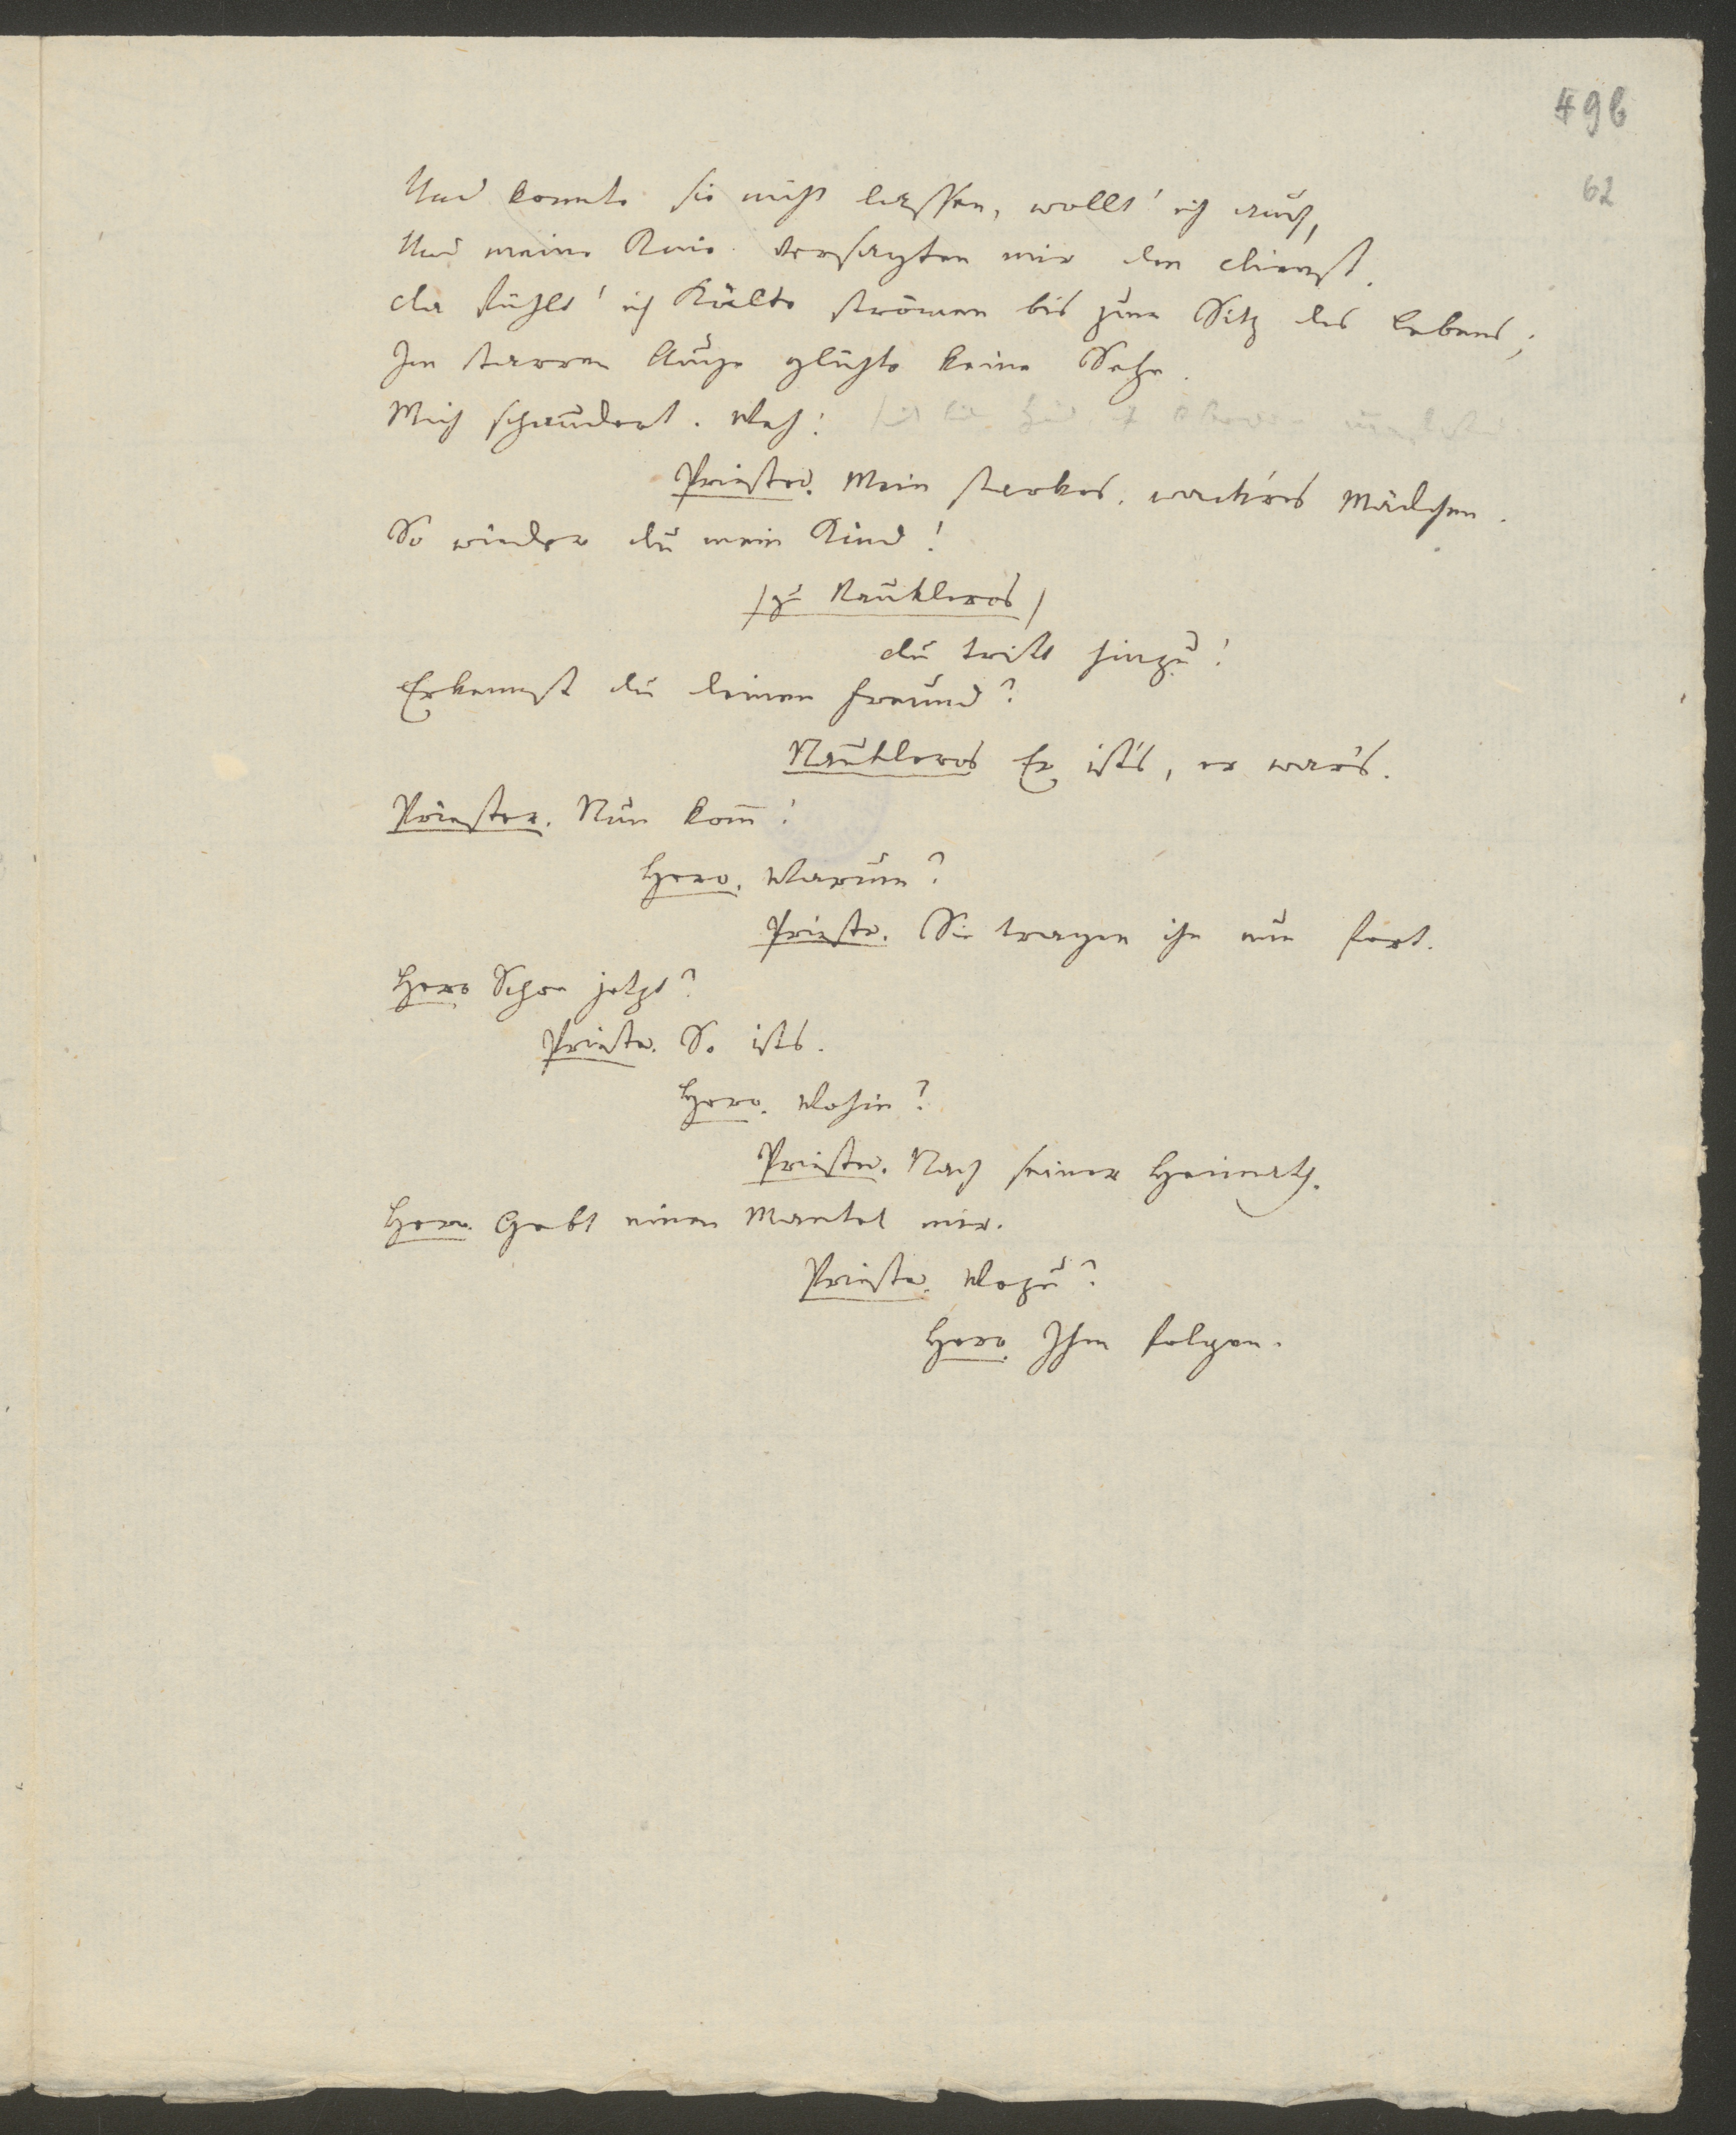 496
62
Und konnte sie nicht lassen, wollt' ich auch,
Und meine Knie versagten mir den Dienst.
Da fühlt' ich Kälte strömen bis zum Sitz des Lebens;
Im starren Auge glühte keine Sehe.
Mich schaudert. Weh!
Priester. Mein starkes, wackres Mädchen.
So wieder du mein Kind!
/zu Naukleros/
Du tritt hinzu!
Erkennst du deinen Freund?
Naukleros Er ist's, er war's.
Priester. Nun kom̄!
Hero. Warum?
Priester. Sie tragen ihn nun fort.
Hero Schon jetzt?
Priester. So ists.
Hero. Wohin?
Priester. Nach seiner Heimath.
Hero. Gebt einen Mantel mir.
Priester. Wozu?
Hero. Ihm folgen.